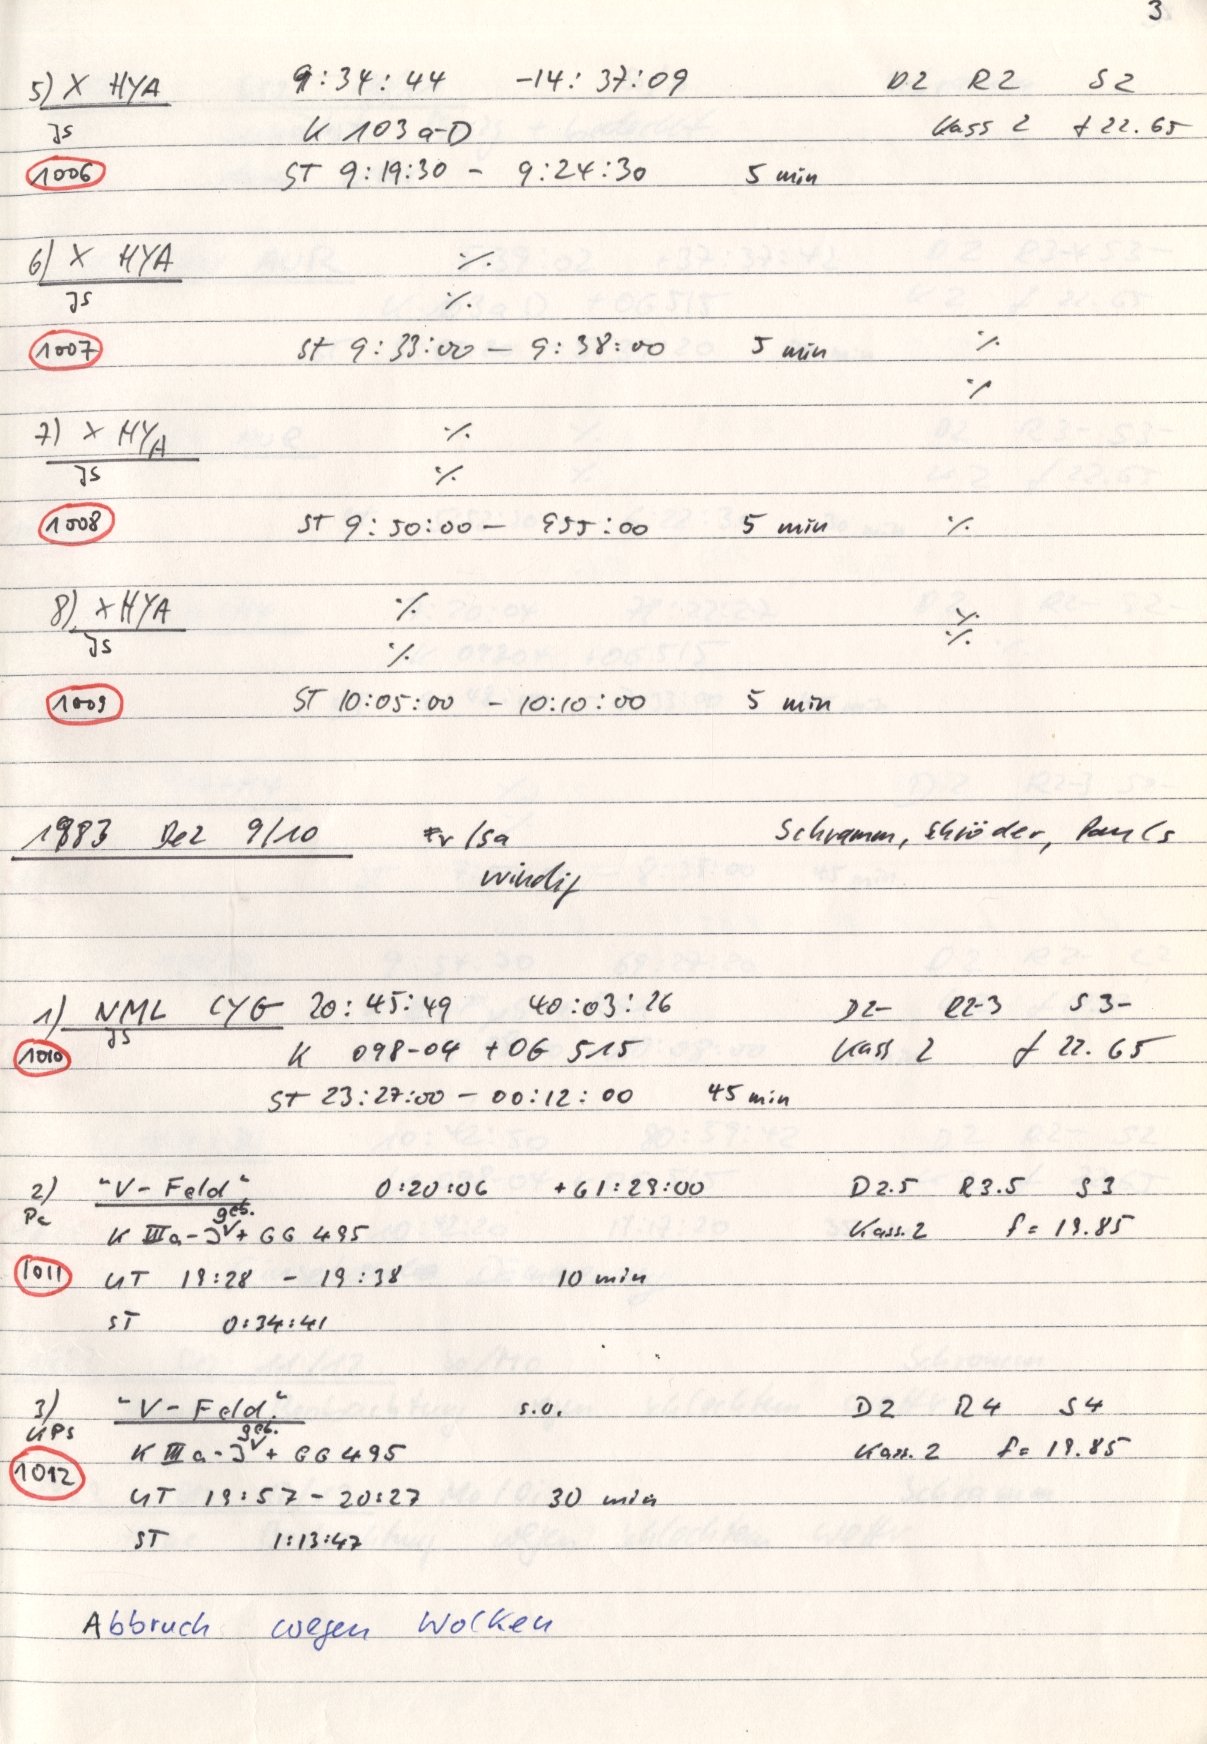 3
5) X HYA 9:34:44 -14:37:09 D2 R2 S2
JS K 103a-D Kass 2 f 22.65
1006 ST 9:19:30 - 9:24:30 5 min
6) X HYA ·/.
JS ·/.
1007 ST 9:33:00 - 9:38:00 5 min ·/.
·/.
7) X HYA ·/.
JS ·/.
1008 ST 9:50:00 - 955:00 5 min ·/.
8) X HYA ·/. ·/.
JS ·/. ·/.
1009 ST 10:05:00 - 10:10:00 5 min
1983 Dez 9/10 Fr/Sa Schramm, Schröder, Pauls
windig
1) NML CYG 20:45:49 40:03:26 D2- R2-3 S3-
JS
1010 K 098-04 + OG 515 Kass 2 f 22.65
ST 23:27:00 - 00:12:00 45 min
2) "V-Feld" 0:20:06 +61:29:00 D2.5 R3.5 S3
geb.
K IIIa-J + GG 495 Kass.2 f= 19.85
1011 UT 19:28 - 19:38 10 min
ST 0:34:41
3) "V-Feld" s.o. D2 R4 S4
geb.
K IIIa-J + GG 495 Kass.2 f= 19.85
1012 UT 19:57 - 20:27 30 min
ST 1:13:47
Abbruch wegen Wolken